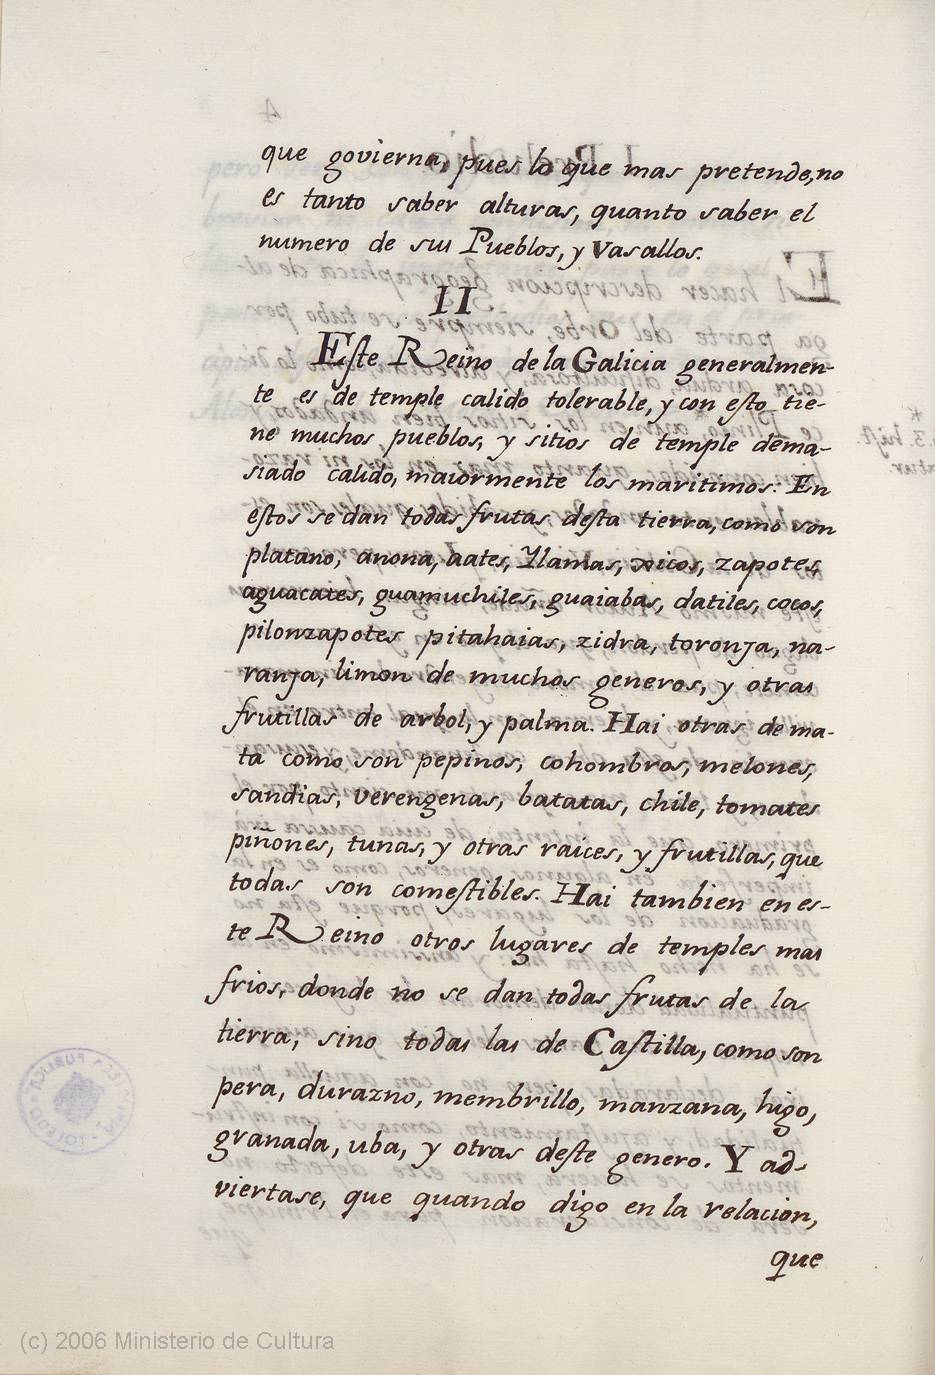 que govierna, pues lo que mas pretende, no
es tanto saber alturas, quanto saber el
numero de sus Pueblos, y Vasallos.
II
Este Reino de la Galicia generalmen-
te es de temple calido tolerable, y con esto tie-
ne muchos pueblos, y sitios de temple dema-
siado calido, maiormente los maritimos: En
estos se dan todas frutas desta tierra, como son
platano, anona, aates, Ylamas, xicos, zapotes,
aguacates, guamuchiles, guaiabas, datiles, cocos,
pilonzapotes pitahaias, zidra, toronja, na-
ranja, limon de muchos generos, y otras
frutillas de arbol, y palma. Hai otras de ma-
ta como son pepinos, cohombros, melones,
sandias, verengenas, batatas, chile, tomates
piñones, tunas, y otras raices, y frutillas, que
todas son comestibles. Hai tambien en es-
te Reino otros lugares de temples mas
frios, donde no se dan todas frutas de la
tierra, sino todas las de Castilla, como son
pera, durazno, membrillo, manzana, higo,
granada, uba, y otras deste genero. Y ad-
viertase, que quando digo en la relacion,
que
(c) 2006 Ministerio de Cultura